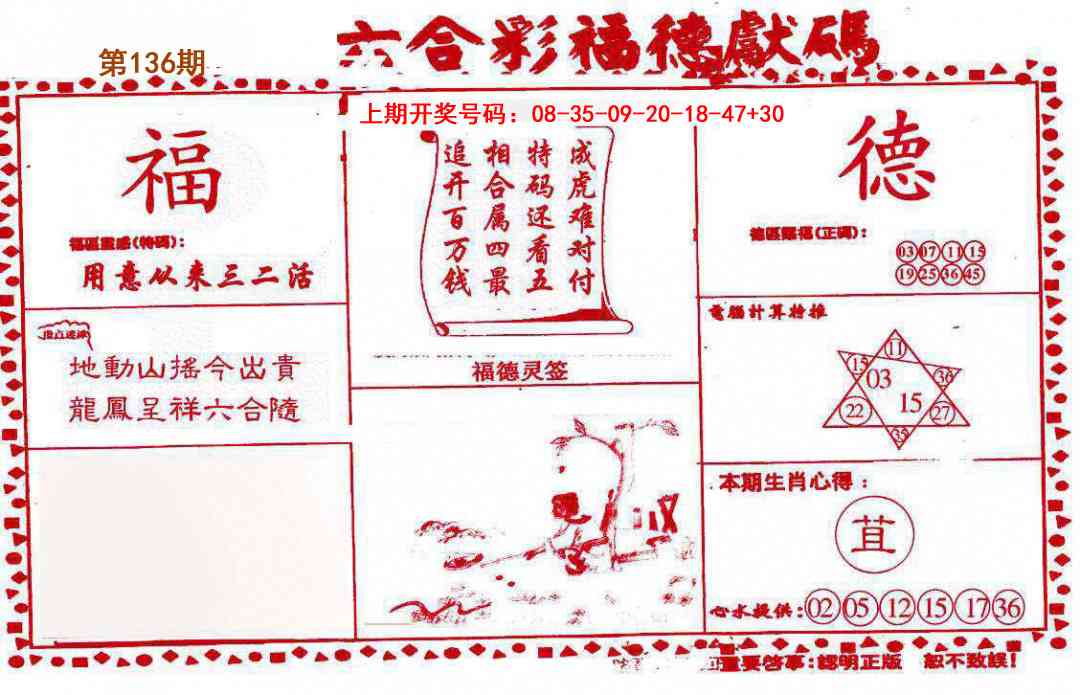 六合彩福德獻碼
第136期
上期开奖号码：08-35-09-20-18-47+30
福
福區靈感(特碼)：
用意以来三二活
成虎难对付
特码还看五
相合属四最
追开百万钱
德
德區賜福(正碼)：
03 07 11 15
19 25 36 45
地動山搖今出貴
龍鳳呈祥六合隨
福德灵签
電腦計算特推
11
15
36
03
15
22
27
35
本期生肖心得：
苴
心水提供：02 05 12 15 17 36
重要啓事：認明正版 恕不致誤！